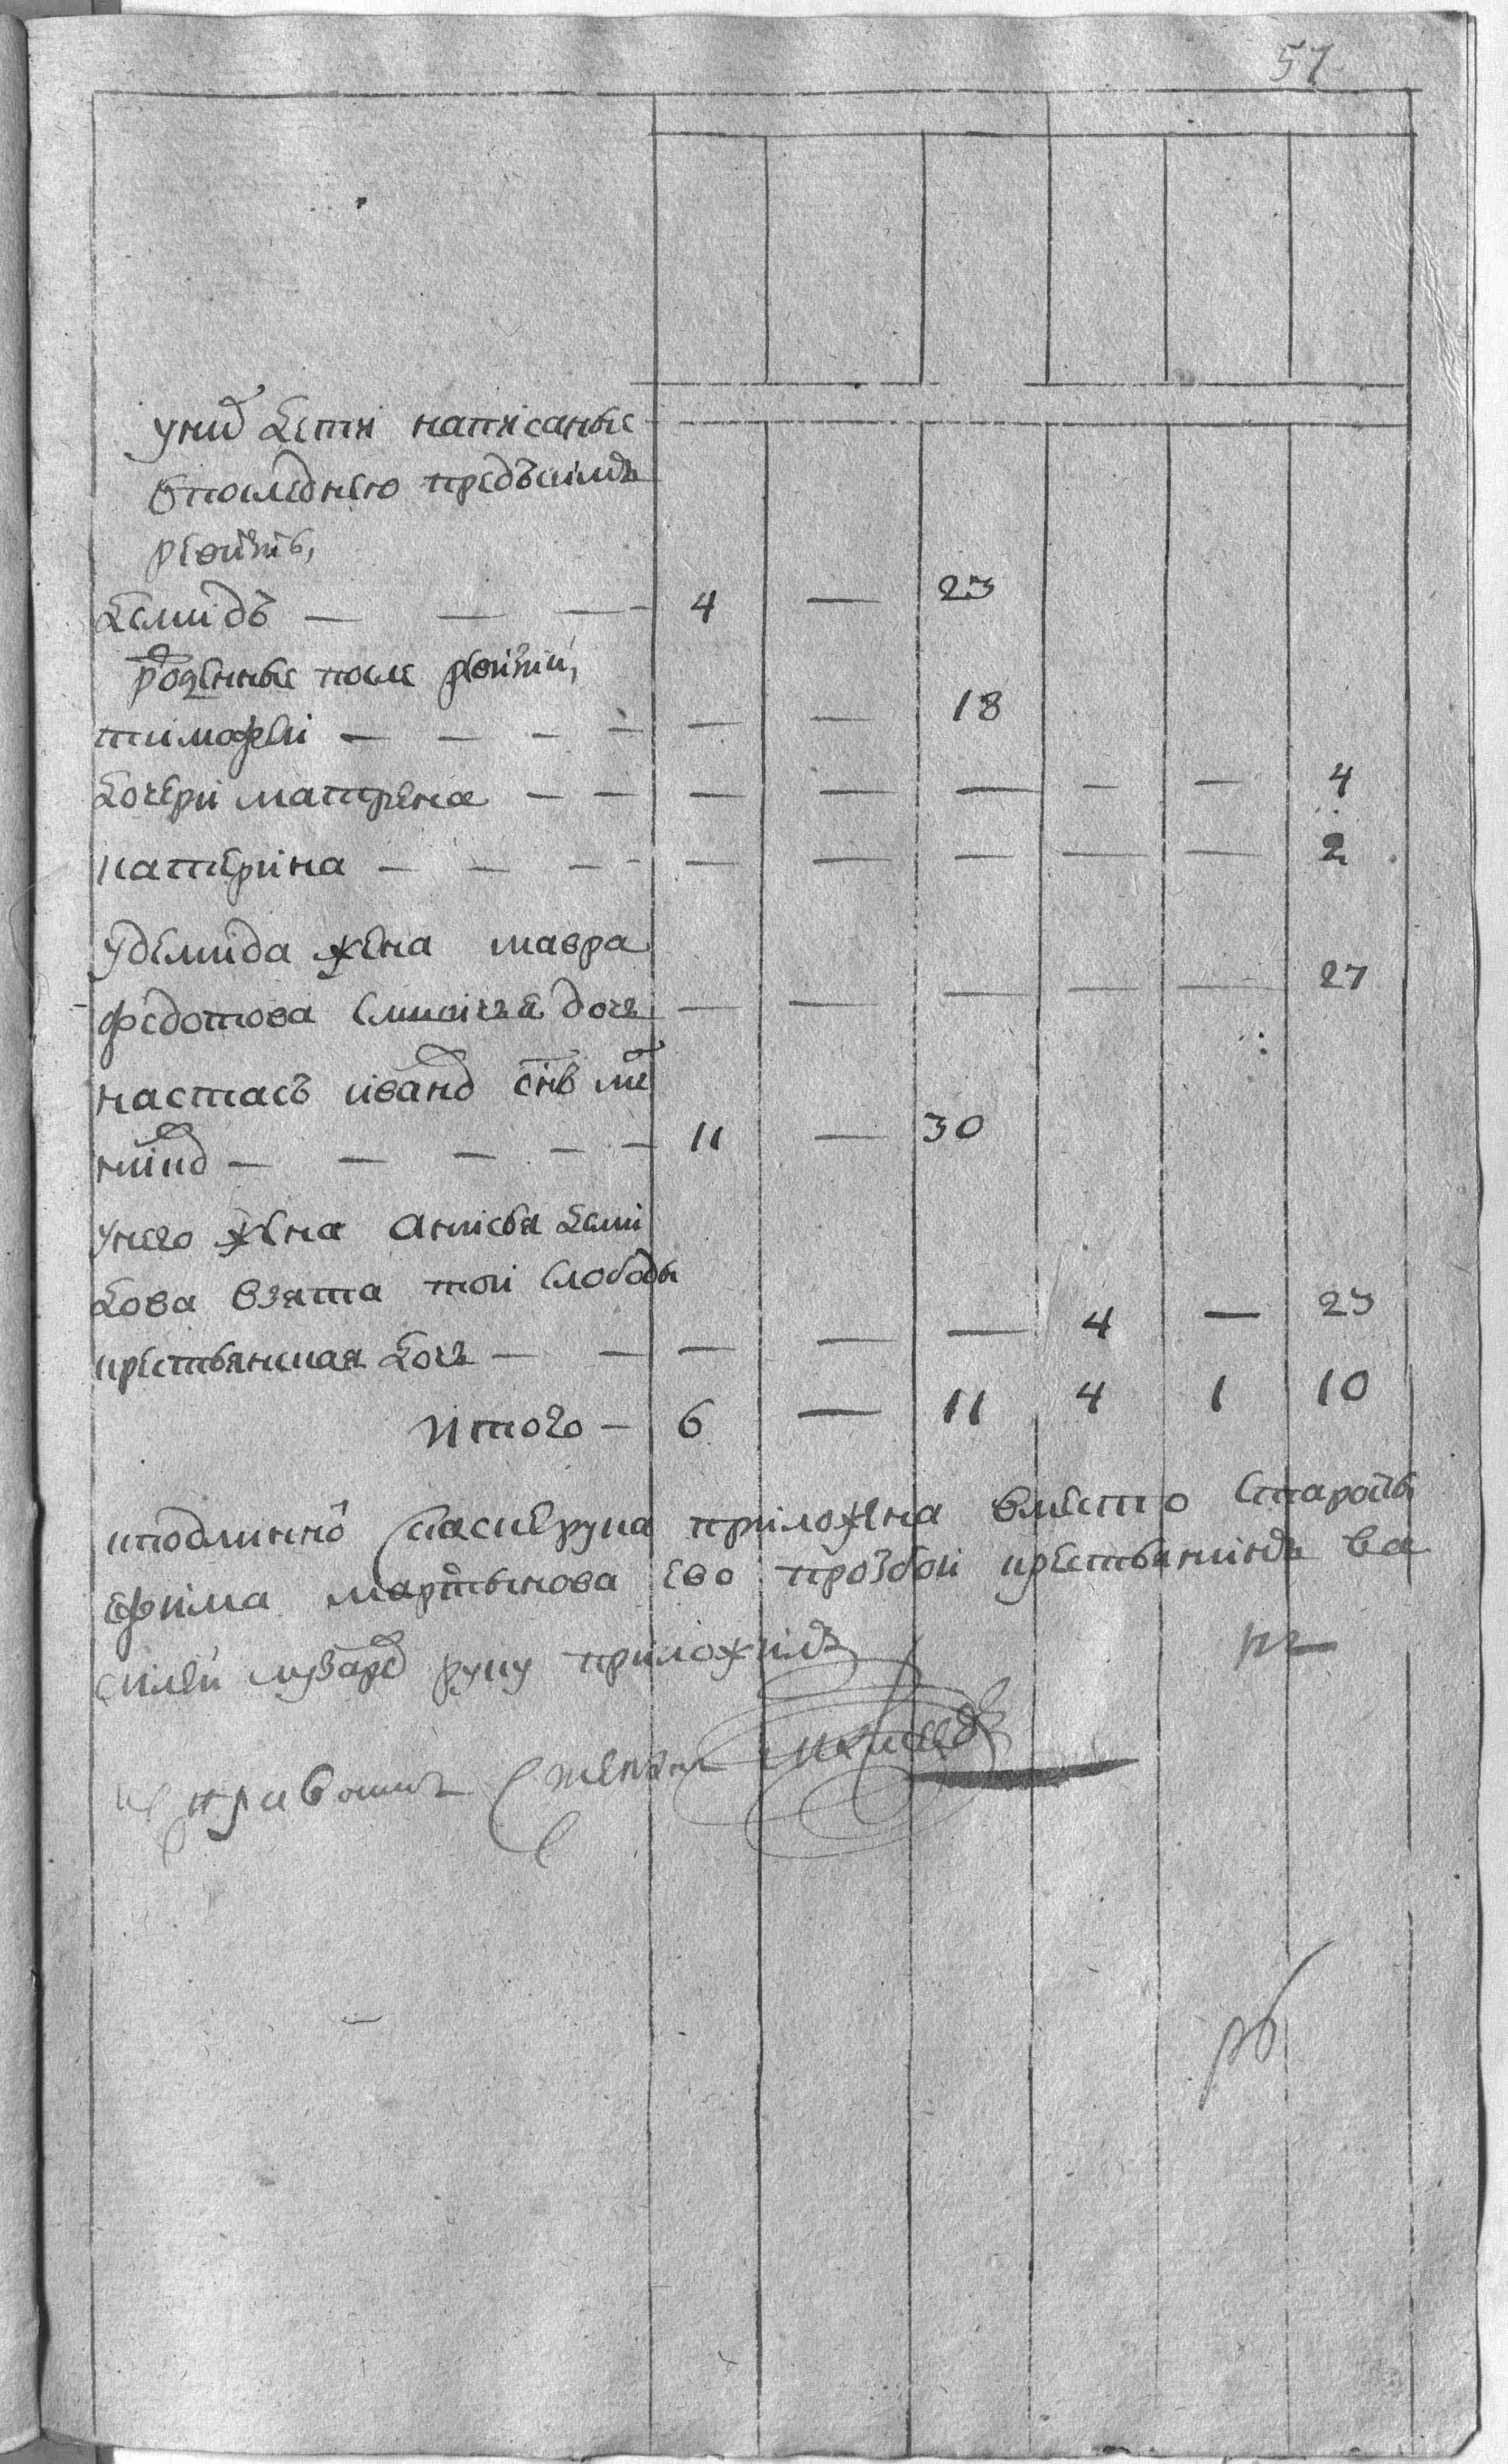 57
у них дети написаные
в последнею предъ сим
ревизию,
Демидъ — — — 4 — 23
рожденные после ревизии,
тимофеи — — — — — — 18
дочери матрена — — — — — — — 4
катерина — — — — — — — — 2
у демида жена мавра
федотова дочь — — — — — 27
настасъ иванов снъ
— — — — — 11 — 30
у него жена анисья деми
дова взята тои слободы
крестьянская дочь — — — — — 4 — 23
итого — 6 — 11 4 1 10
к подлинной скаске рука приложена вместо старосты
ефима мартынова ево прозбои крестьянинъ ва
силеи руку приложилъ